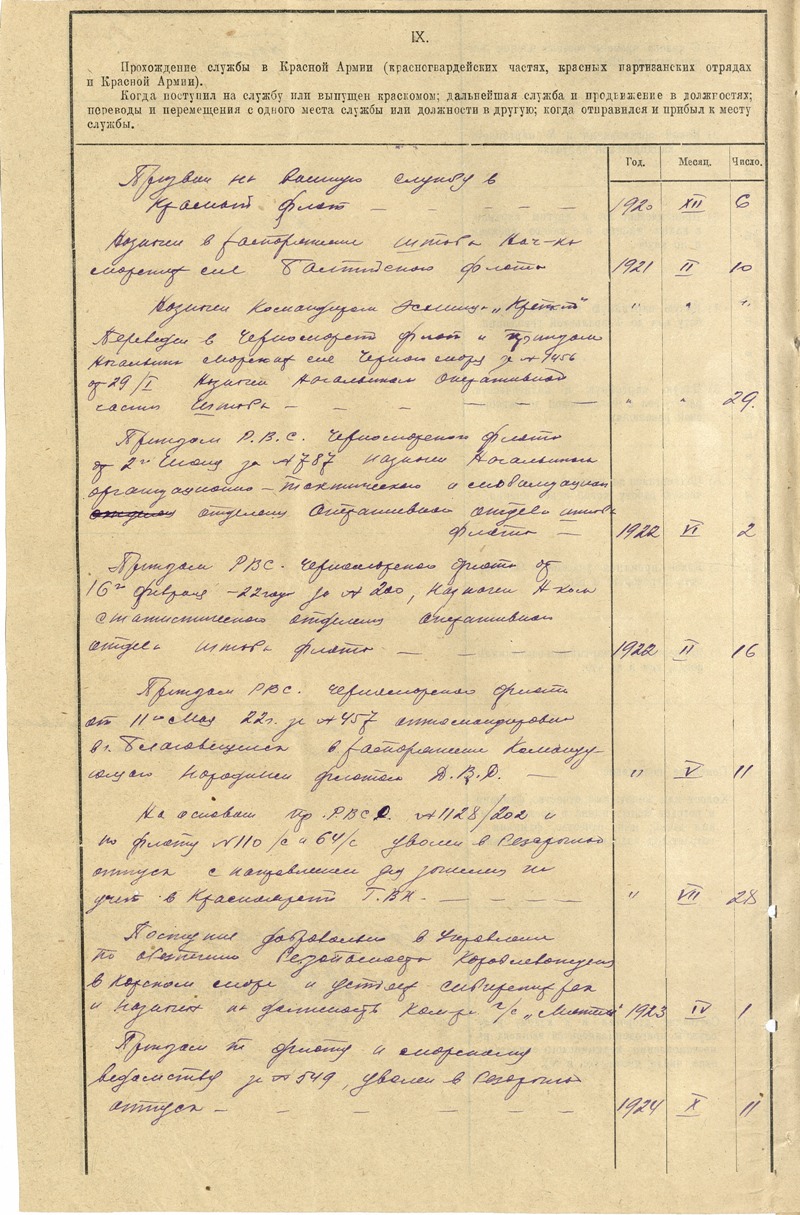 IX.
Прохождение службы в Красной Армии (красногвардейских частях, красных партизанских отрядах
и Красной Армии).
Когда поступил на службу или выпущен краскомом; дальнейшая служба и продвижение в должностях;
переводы и перемещения с одного места службы или должности в другую; когда отправился и прибыл к месту
службы.
Год. Месяц. Число.
Призван на военную службу в
Красный флот — — — — — 1920 XII 6
Назначен в распоряжение штаба Нач-ка
морских сил Балтийского флота 1921 II 10
Назначен Командиром Эсминца „Крепкий" " " "
Переведен в Черноморск флот и приказом
Начальника морских сил Черного моря за № 1456
от 29/I Назначен Начальником Оперативной
части Штаба — — — — — — " " 29.
Приказом Р.В.С. Черноморского флота
от 2го Июня за № 787 назначен Начальником
организационно-тактического и мобилизацион
отделения Оперативного отдела штаба
флота — 1922 VI 2
Приказом РВС. Черноморского флота от
16го февраля -22 года за № 200, назначен Н-ком
статистического отделения Оперативного
отдела штаба флота — — — — 1922 II 16
Приказом РВС. Черноморского флота
от 11го Мая 22г. за № 457 откомандирован
в г. Благовещенск в распоряжение Команду-
ющего Народным флотом Д.В.Р. — " V 11
На основан пр. РВС. № 1128/202 и
по флоту № 110/с и 64/с уволен в Резервный
отпуск с направлением для зачисления на
учет в Красноморский Г.ВК. — — — — " VII 28
Поступил добровольно в Управление
по обеспечению безопасности Кораблевождения
в Карском море и устьях сибирских рек
и назначен на должность Ком-ра г/с „Метель" 1923 IV 1
Приказом по флоту и морскому
ведомству за № 549, уволен в Резервный
отпуск — — — — — — 1924 X 11